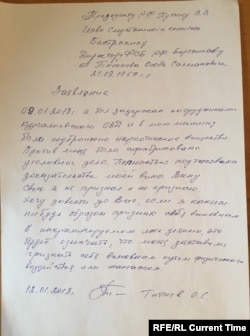 Президенту РФ Путину В.В
Главе Следственного комитета
Бастрыкину
Директору ФСБ РФ Бортникову
от Титиева Оюба Салмановича
24.08.1957 г.р
Заявление
09.01.2018 г. я был задержан сотрудниками
Курчалоевского ОВД и в мою машину
было подброшено наркотическое вещество
Против меня было сфабриковано
уголовное дело. Полностью подтасованы
доказательства моей вины. Вину
свою я не признал и не признаю,
хочу довести до Вас, если я каким-
нибудь образом признаю себя виновным
в инкриминируемом мне деянии, это
будет означать, что меня заставили
признать себя виновным путем физического
воздействия или шантажом
12.01.2018. Титиев О.С.
RFE/RL Current Time